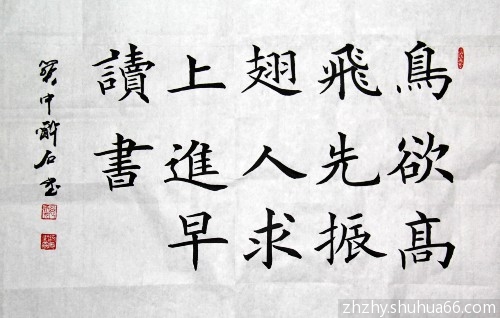 鳥欲高
飛先振
翅人求
上進早
讀書
zhzhy.shuhua66.com